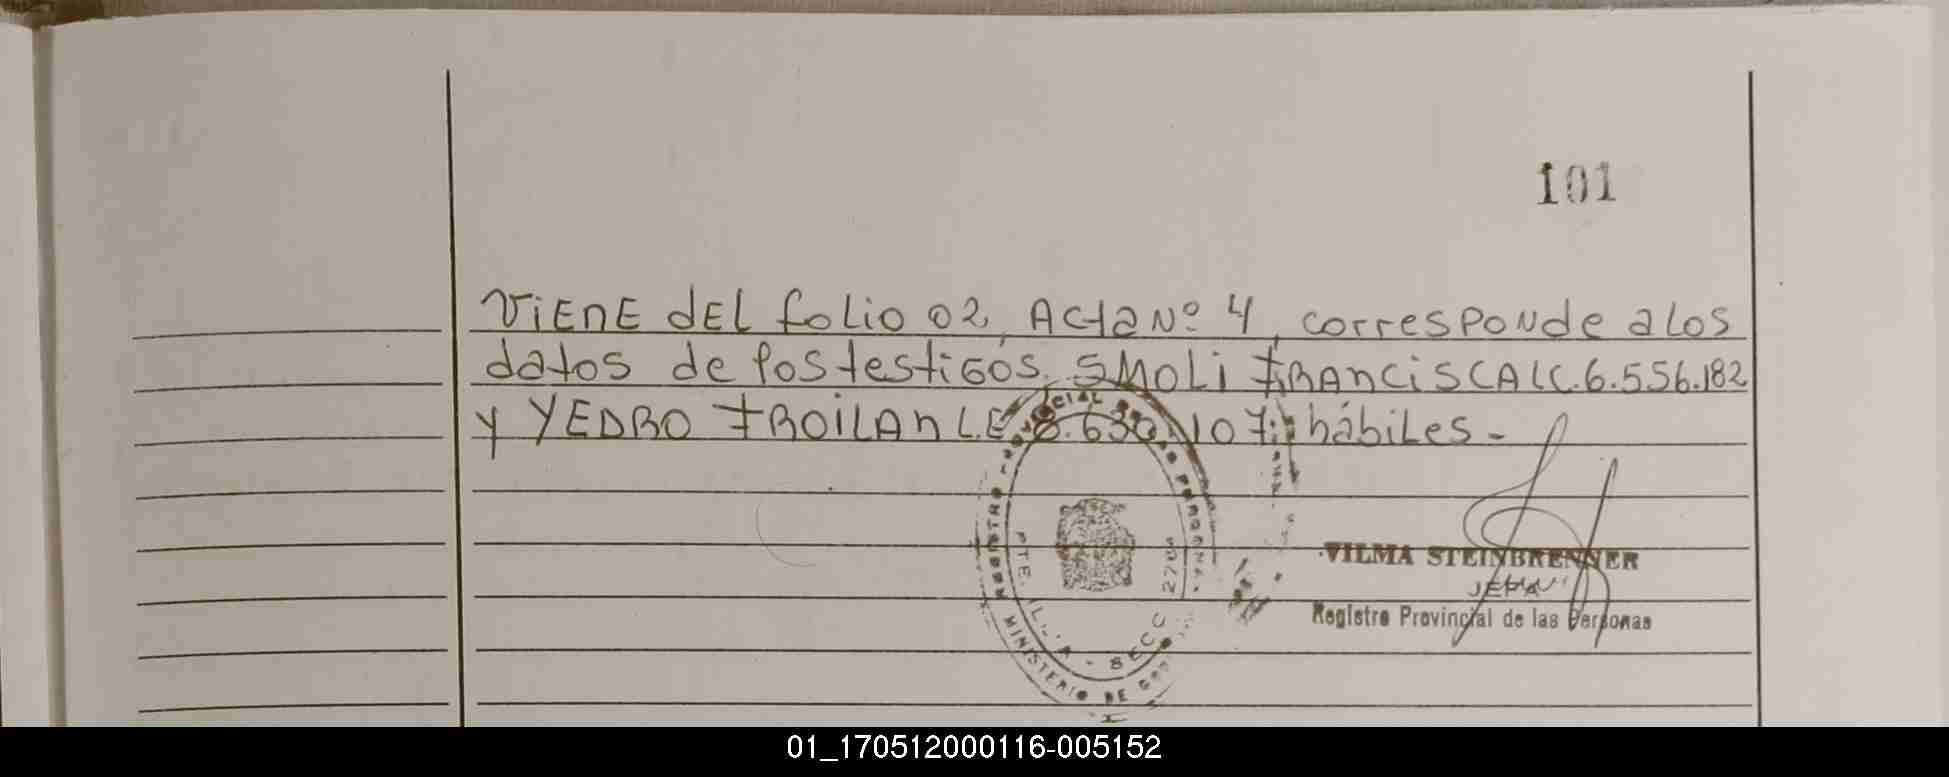 101
ViENE dEL folio 02, ACta Nº 4, corresponde a los
datos de los testigos, SMOLi FRANCiSCA LC.6.556.182
y YEDRO FROiLAN L.E 8.630.107; hábiles -
REGISTRO PROVINCIAL DE LAS PERSONAS
MINISTERIO DE
SECC 2708
VILMA STEINBRENNER
JEFA
Registro Provincial de las Personas
01_170512000116-005152